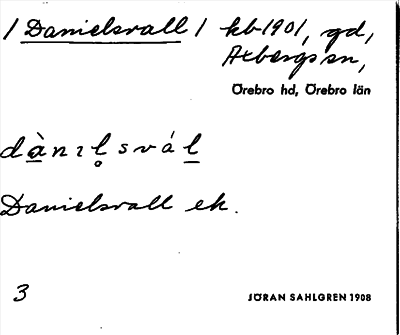 / Danielsvall / kb 1901, gd,
Axbergs sn,
Örebro hd, Örebro län
dànıl̥svál
Danielsvall ek.
3
JÖRAN SAHLGREN 1908